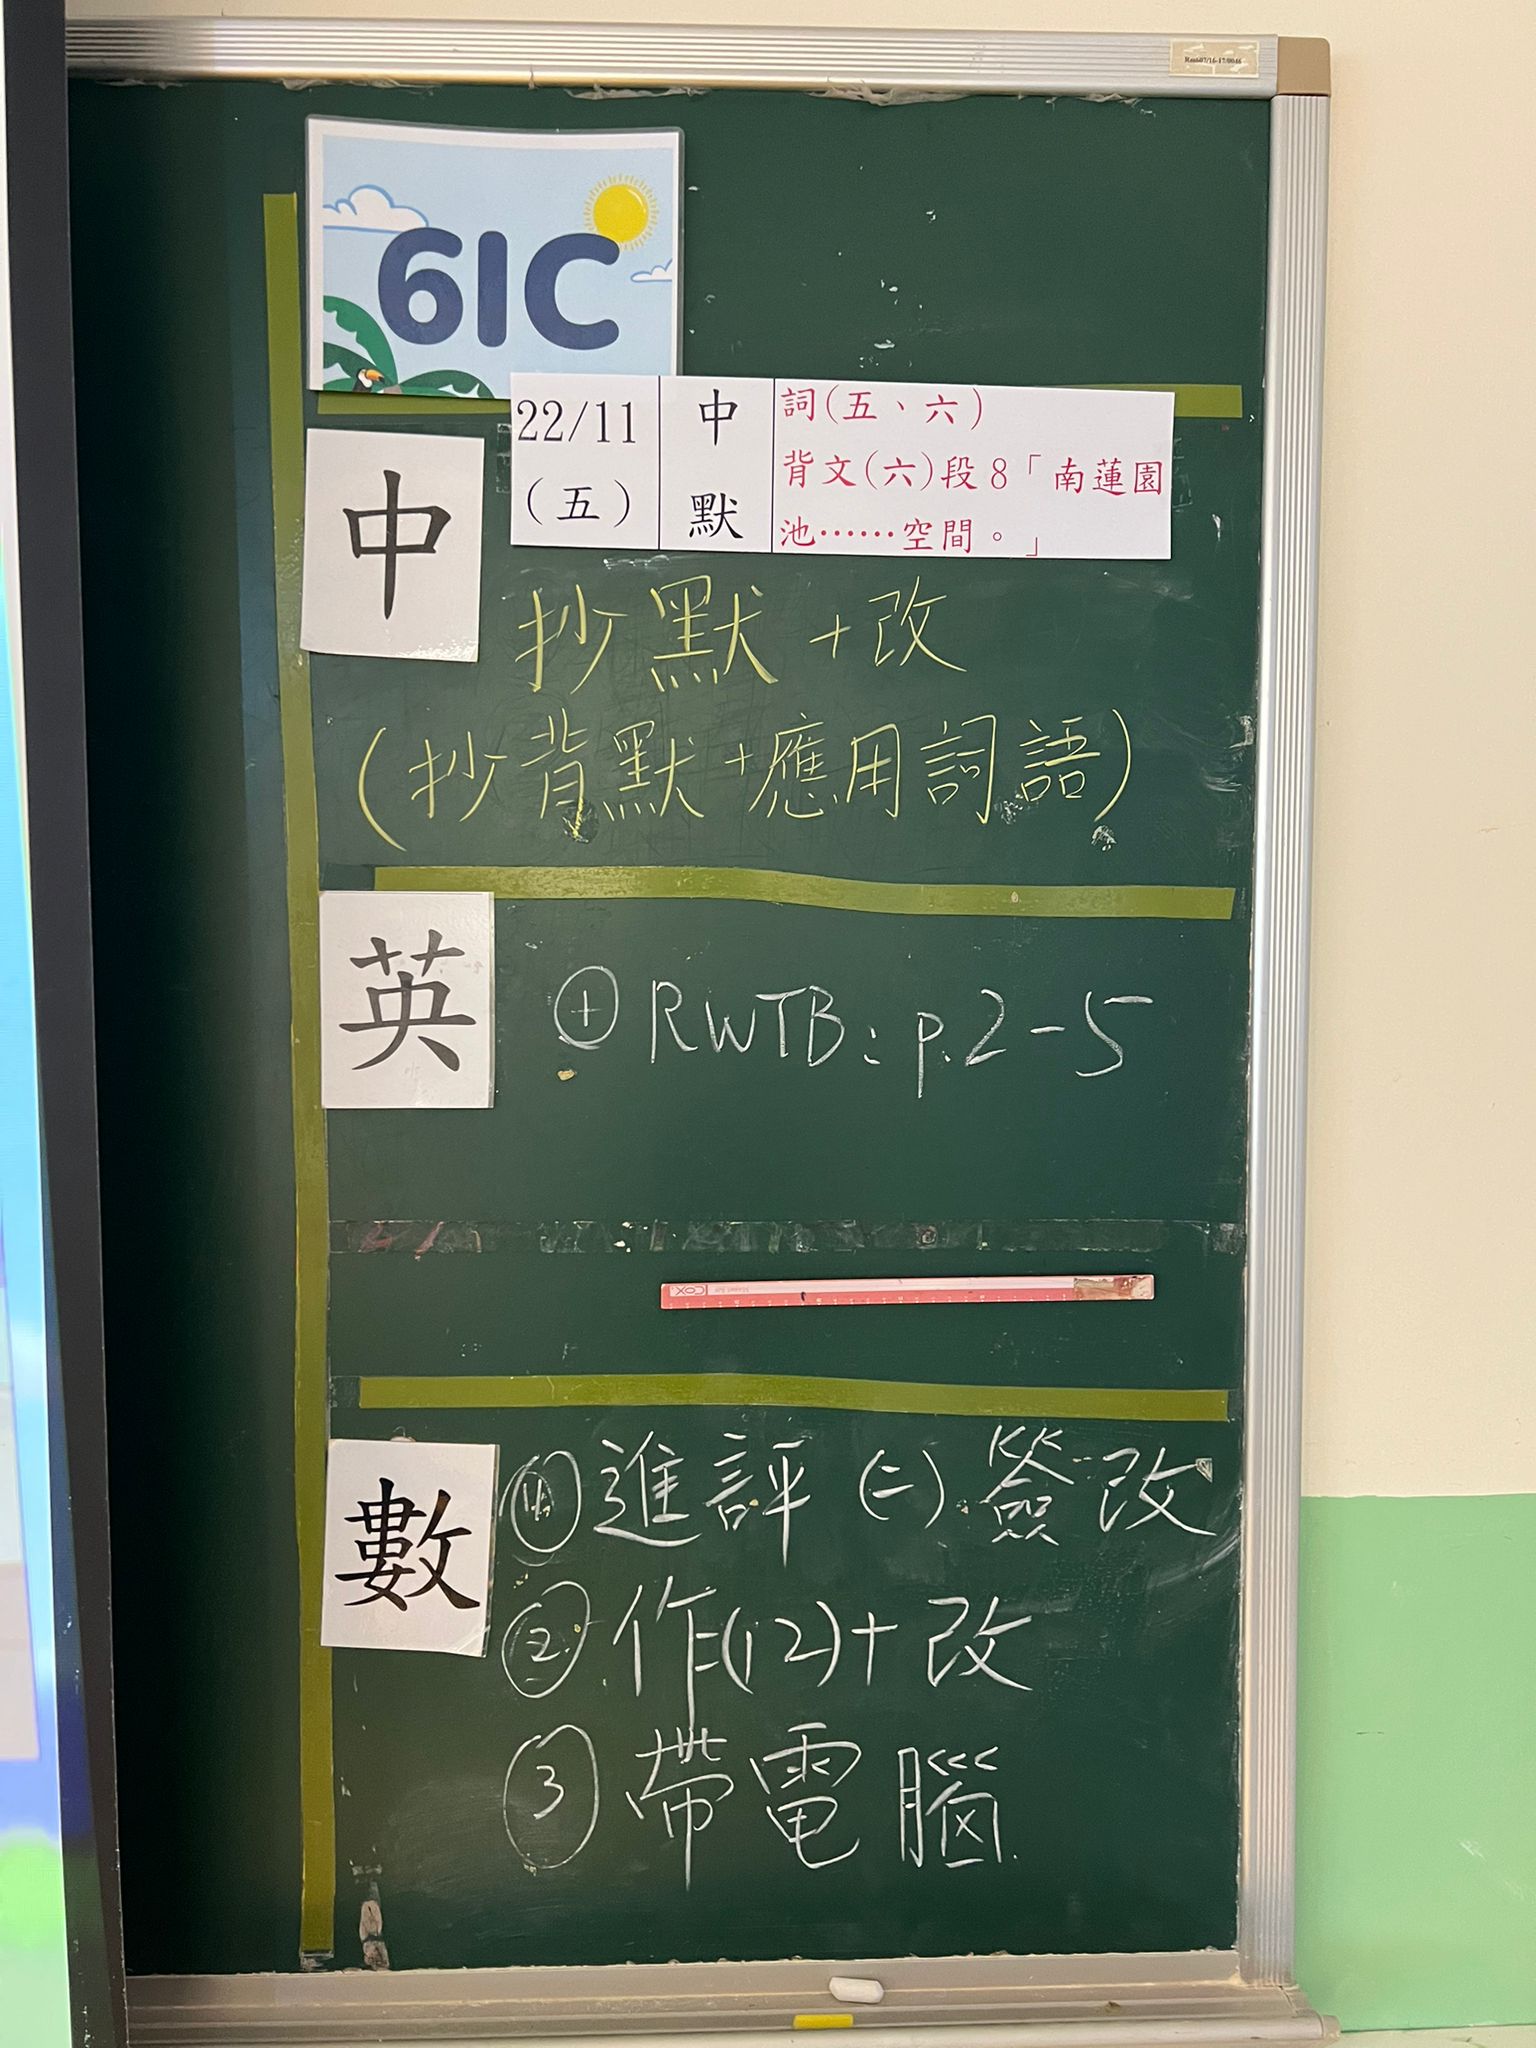 61C
22/11
(五)
中
默
詞(五、六)
背文(六)段8「南蓮園
池……空間。」
中
抄默+改
(抄背默+應用詞語)
英
① RWTB: p.2-5
數
① 進評(二)簽改
② 作(12)+改
③ 帶電腦
COX